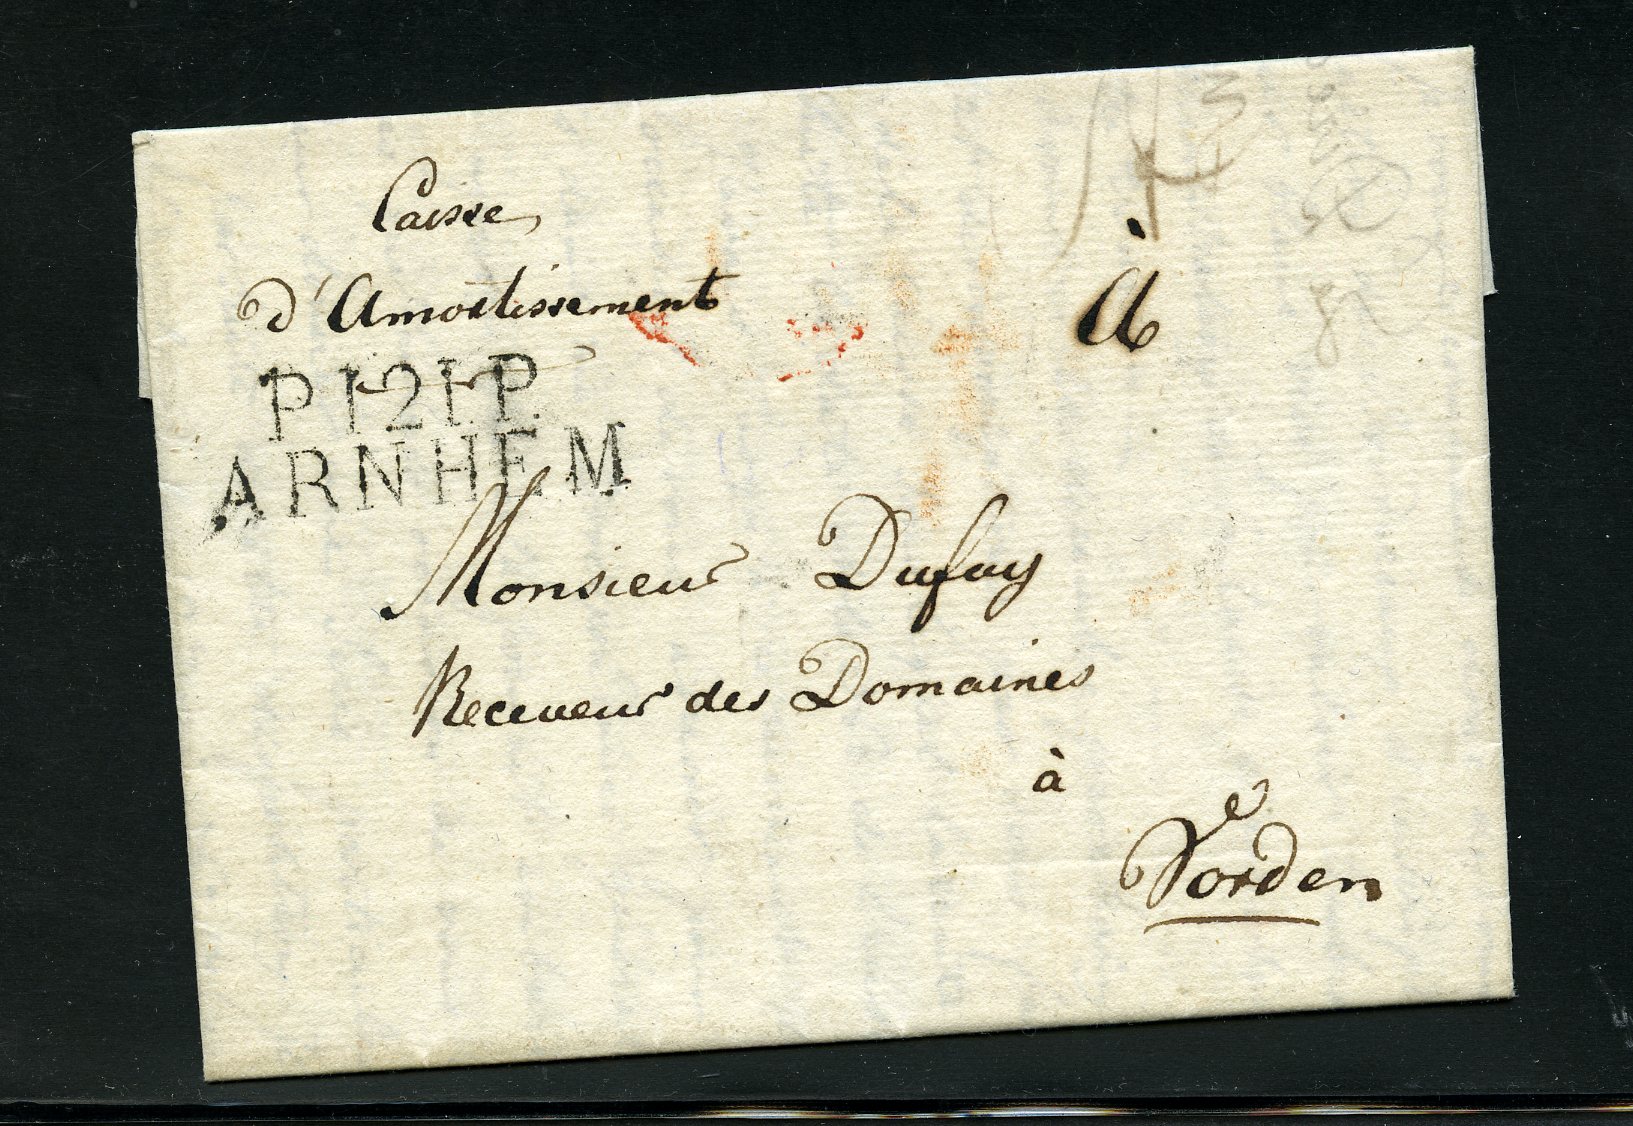 Caisse
d'Amortissement
À
P121P.
ARNHEM
Monsieur Dufay
Receveur des Domaines
à
Vorden